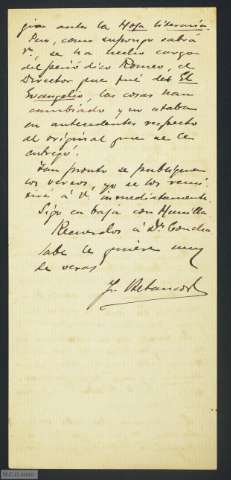 gian ante la Hoja literaria.
Pero, como supongo sabrá
V., se ha hecho cargo
del periódico Romeo, el
Director que fué del El
Evangelio, las cosas han
cambiado y no estaban
en antecedentes respecto
al original que se le
entregó.
Tan pronto se publiquen
los versos, yo se los remi
tiré á V. inmediatamente.
Sigo en baja con
Recuerdos á Dª Concha
Sabe le quiere muy
de veras